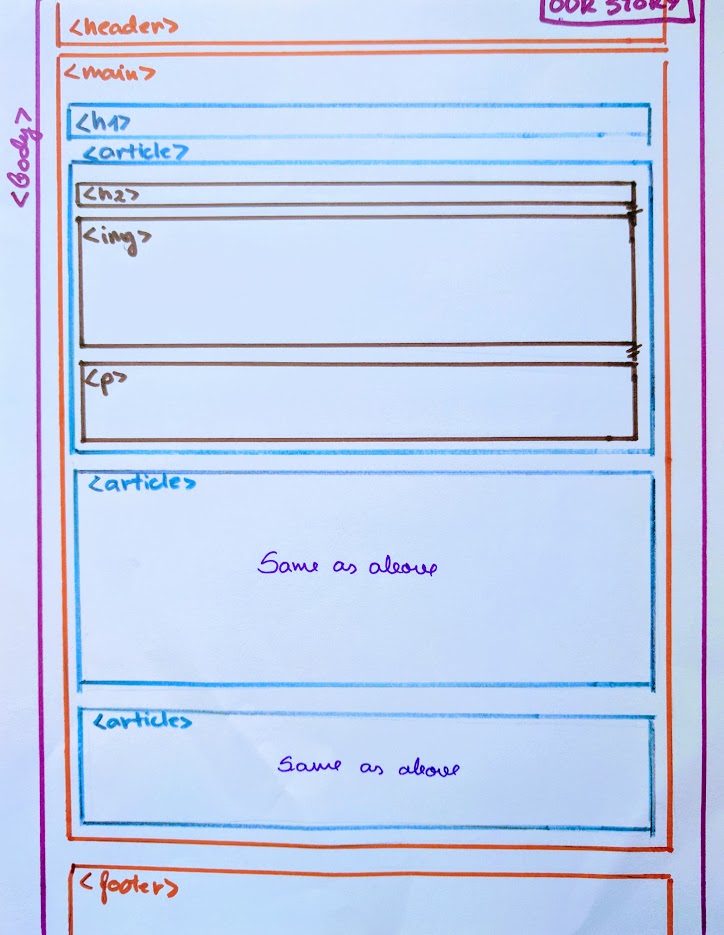 OUR STORY
<header>
<main>
<body>
<h1>
<article>
<h2>
<img>
<p>
<article>
Same as above
<article>
Same as above
<footer>